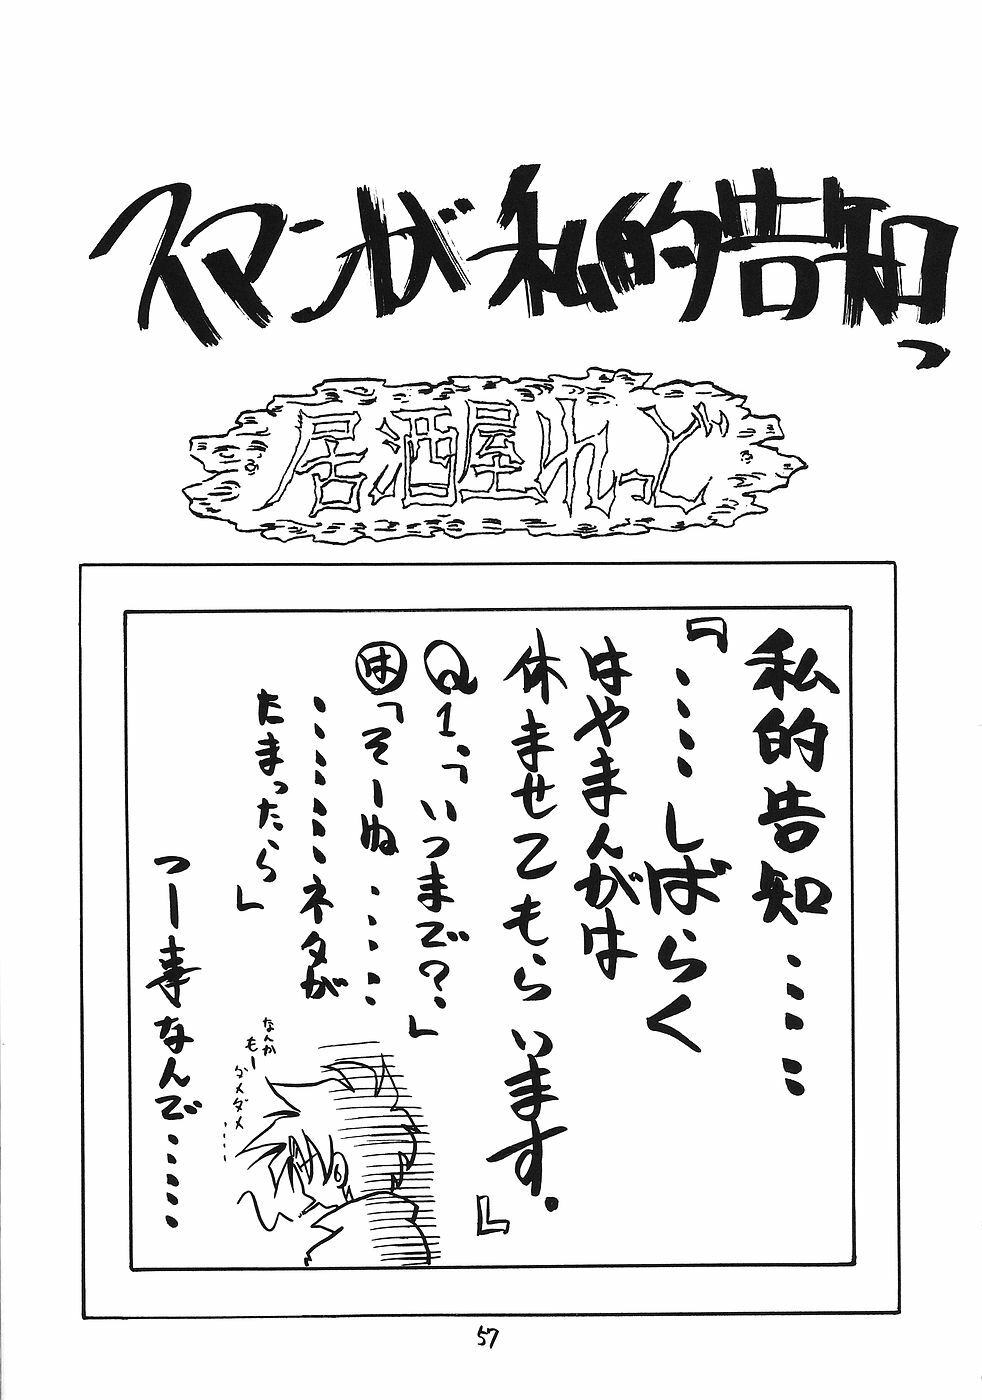 スマンが私的告知っ
居酒屋れっど
私的告知……
『……しばらく
はやまんがは
休ませてもらいます。』
Q1.「いつまで？」
は「そーぬ……
………ネタが
たまったら」
つー事なんで……
なんか
もー
ダメダメ……
57